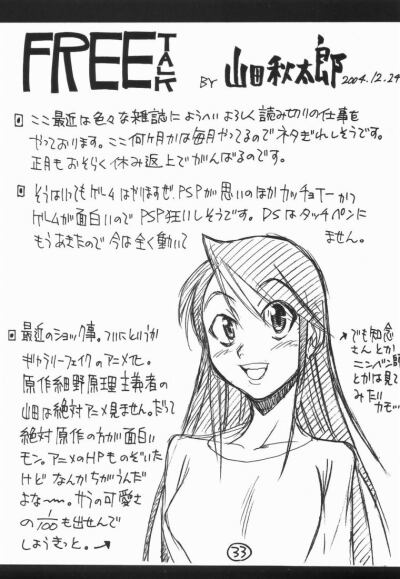 FREE TALK
BY 山田秋太郎 2004.12.24
ここ最近は色々な雑誌にようへいよろしく読み切りの仕事を
やっております。ここ何ヶ月かは毎月やってるのでネタぎれしそうです。
正月もおそらく休み返上でがんばるのです。
そうはいってもゲームはやりますぜ。PSPが思いのほかカッチョエーかつ
ゲームが面白いのでPSP狂いしそうです。DSはタッチペンに
もうあきたので今は全く動いて ません。
最近のショック事。ついにというか
ギャラリーフェイクのアニメ化。
原作細野原理主義者の
山田は絶対アニメ見ません。だって
絶対原作の方が面白い
モン。アニメのHPものぞいた
けどなんかちがうんだ
よな〜。サラの可愛さ
の1/100も出せんで
しょうきっと。→
→でも知念
さんとか
ニンベン師
とかは見て
みだい
カモ…
33